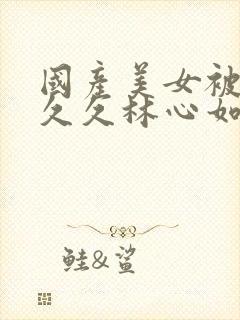 國產美女被
久久林心如
鮭&鯊